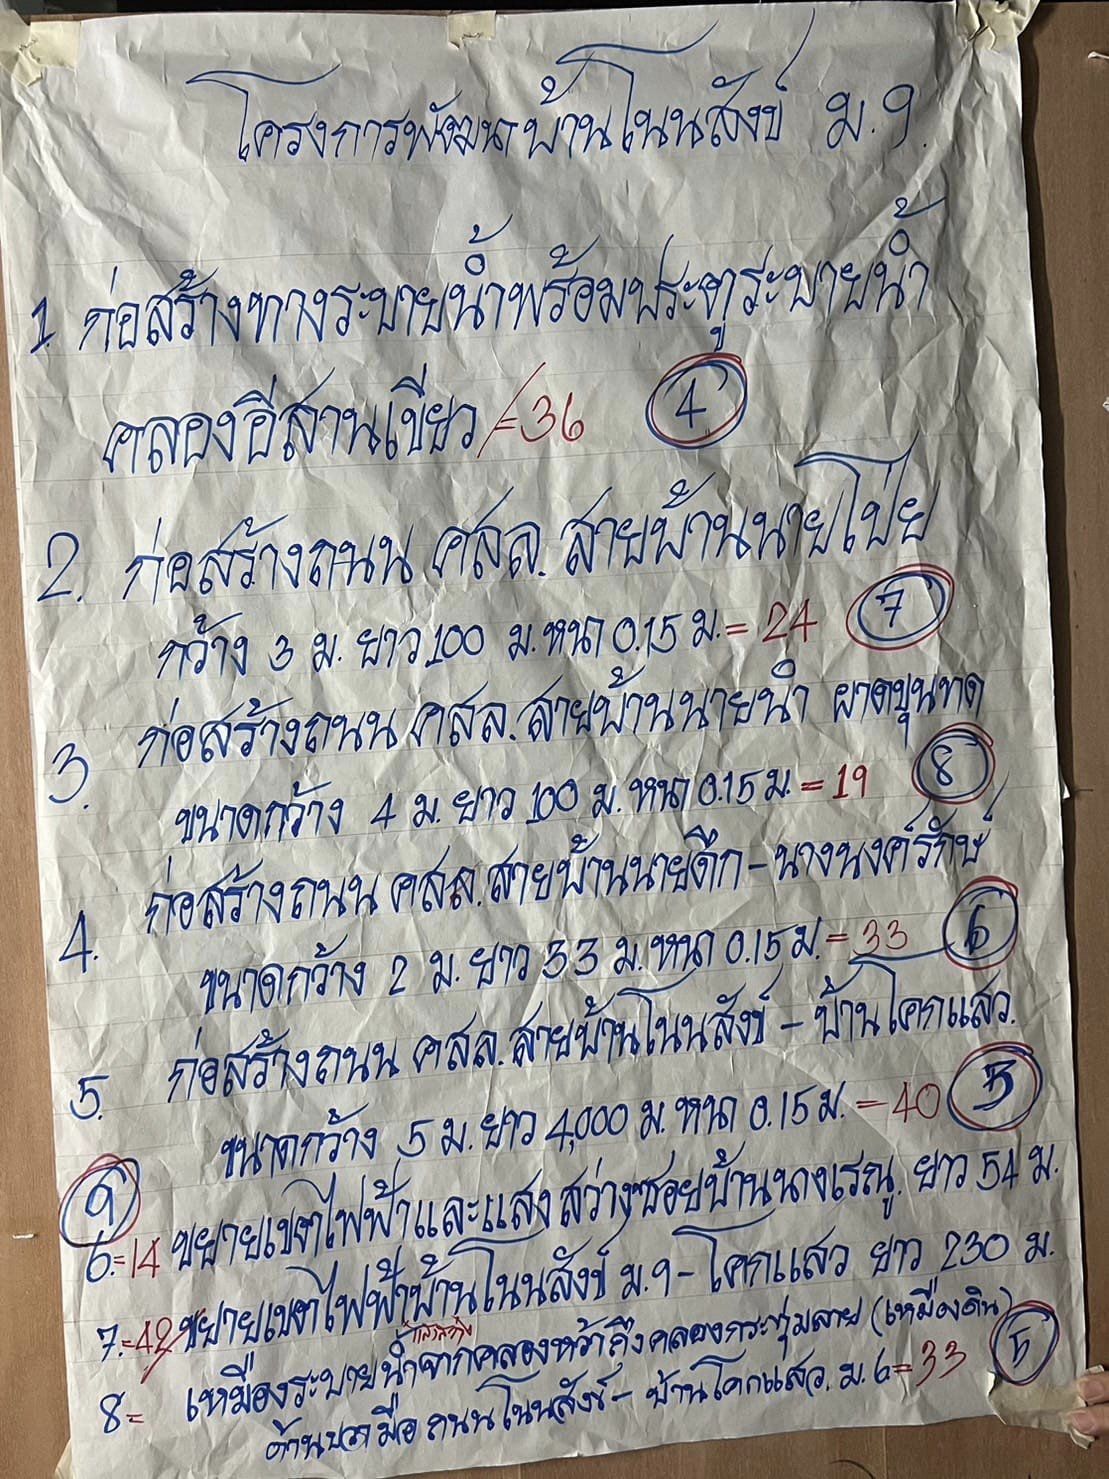 โครงการพัฒนาบ้านโนนสังข์ ม.9.
1 ก่อสร้างทางระบายน้ำพร้อมประตูระบายน้ำ
คลองอีสานเขียว = 36 4
2. ก่อสร้างถนน คสล. สายบ้านนายโป่ย
กว้าง 3 ม. ยาว 100 ม. หนา 0.15 ม. = 24 7
3. ก่อสร้างถนน คสล. สายบ้านนายน้ำ ผาดขุนทด
ขนาดกว้าง 4 ม. ยาว 100 ม. หนา 0.15 ม. = 19 8
4. ก่อสร้างถนน คสล. สายบ้านนายดึก - นางนงค์รักษ์
ขนาดกว้าง 2 ม. ยาว 33 ม. หนา 0.15 ม. = 33 6
5. ก่อสร้างถนน คสล. สายบ้านโนนสังข์ - บ้านโคกแสว.
ขนาดกว้าง 5 ม. ยาว 4,000 ม. หนา 0.15 ม. = 40
9
6. = 14 ขยายเขตไฟฟ้าและแสงสว่างซอยบ้านนางเรณู. ยาว 54 ม.
7. = 42 ขยายเขตไฟฟ้าบ้านโนนสังข์ ม.9 - โคกแสว ยาว 230 ม.
8 = เหมืองระบายน้ำจากคลองหว้าถึงคลองกระทุ่มลาย (เหมืองดิน) 5
ด้านขวามือ ถนนโนนสังข์ - บ้านโคกแสว. ม.6 = 33